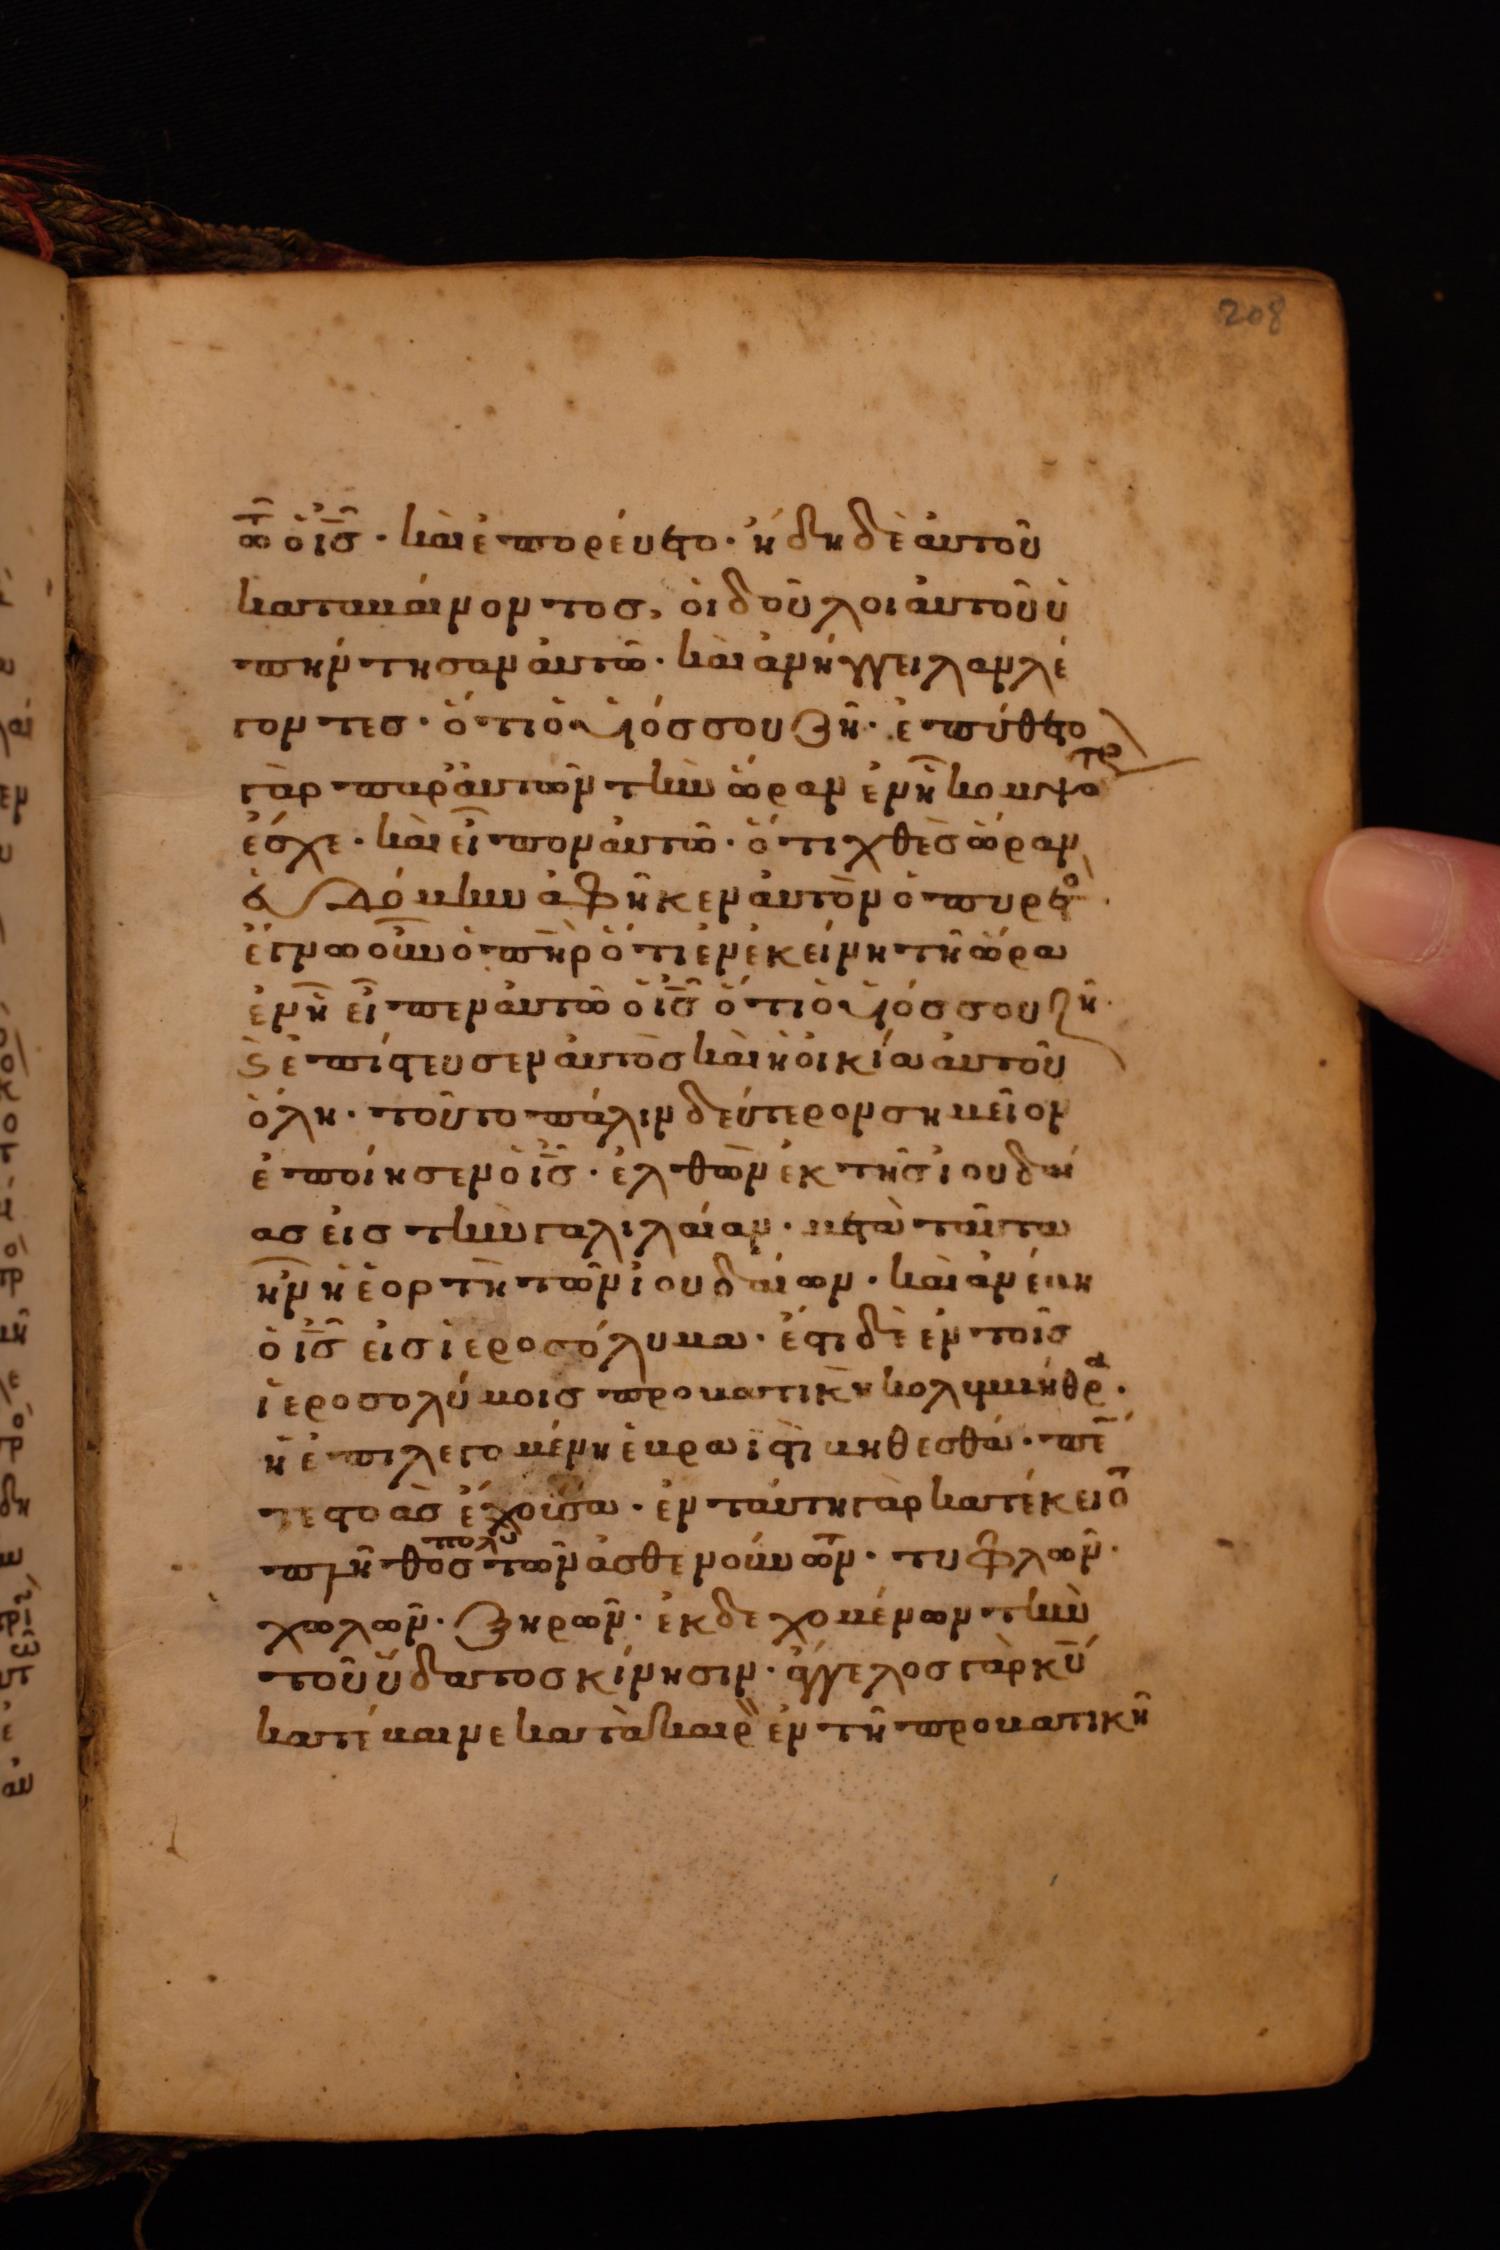 208
τῶ ὁ ἰς̄ · καὶ ἐπορεύετο · ἤδη δὲ αὐτοῦ
καταβαίνοντος, οἱ δοῦλοι αὐτοῦ ὑ
πήντησαν αὐτῶ · καὶ ἀνήγγειλαν λέ
γοντες · ὅτι ὁ υἱός σου ζῆ · ἐπύθετο
γὰρ παρ' αὐτῶν τὴν ὥραν ἐν ἧ κομψότε
ἔσχε · καὶ εἶπον αὐτῶ · ὅτι χθὲς ὥραν
ἑβδόμην ἀφῆκεν αὐτὸν ὁ πυρετό ·
ἔγνω οὖν ὁ πὴρ ὅτι ἐν ἐκείνη τῆ ὥρα
ἐν ἧ εἶπεν αὐτῶ ὁ ἰς̄ ὅτι ὁ υἱός σου ζῆ ·
ϗ ἐπίστευσεν αὐτὸς καὶ ἡ οἰκία αὐτοῦ
ὅλη · τοῦτο πάλιν δεύτερον σημεῖον
ἐποίησεν ὁ ἰς̄ · ἐλθὼν ἐκ τῆς ἰουδαί
ας εἰς τὴν γαλιλαίαν · μετὰ ταῦτα
ἦν ἡ ἑορτὴ τῶν ἰουδαίων · καὶ ἀνέβη
ὁ ἰς̄ εἰς ἱεροσόλυμα · ἔστι δὲ ἐν τοῖς
ἱεροσολύμοις προβατικὴ κολυμβήθρα ·
ἡ ἐπιλεγομένη ἑβραϊστὶ βηθεσθά · πέν
τε στοὰς ἔχουσα · ἐν ταύτη γὰρ κατέκειτο
πλῆθος πολὺ τῶν ἀσθενούντων · τυφλῶν ·
χωλῶν · ξηρῶν · ἐκδεχομένων τὴν
τοῦ ὕδατος κίνησιν · ἄγγελος γὰρ κῡ
κατέβαινε κατὰ καιρ ἐν τῆ προβατικῆ